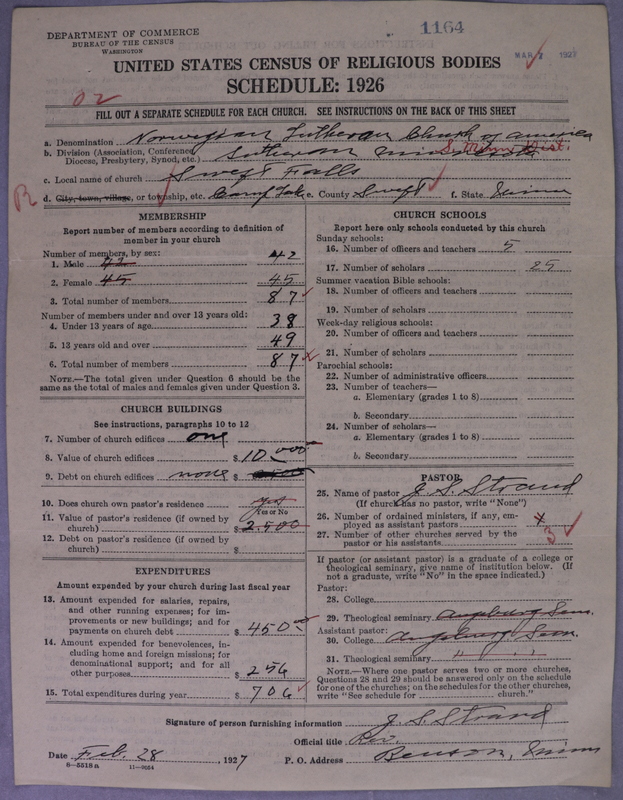 DEPARTMENT OF COMMERCE
BUREAU OF THE CENSUS
WASHINGTON
1164
MAR 2 1927
UNITED STATES CENSUS OF RELIGIOUS BODIES
SCHEDULE: 1926
02
FILL OUT A SEPARATE SCHEDULE FOR EACH CHURCH. SEE INSTRUCTIONS ON THE BACK OF THIS SHEET
a. Denomination Norwegian Lutheran Church of America
b. Division (Association, Conference, Diocese, Presbytery, Synod, etc.) Lutheran Minnesota S. Minn. Dist.
c. Local name of church Swift Falls
R d. City, town, village, or township, etc. Camp Lake e. County Swift f. State Minn
MEMBERSHIP
Report number of members according to definition of member in your church
Number of members, by sex:
1. Male 42 42
2. Female 45 45
3. Total number of members 87
Number of members under and over 13 years old:
4. Under 13 years of age 38
5. 13 years old and over 49
6. Total number of members 87
NOTE.—The total given under Question 6 should be the same as the total of males and females given under Question 3.
CHURCH BUILDINGS
See instructions, paragraphs 10 to 12
7. Number of church edifices one
8. Value of church edifices $ 10,000
9. Debt on church edifices none $
10. Does church own pastor's residence yes
Yes or No
11. Value of pastor's residence (if owned by church) $ 2.500
12. Debt on pastor's residence (if owned by church) $
EXPENDITURES
Amount expended by your church during last fiscal year
13. Amount expended for salaries, repairs, and other running expenses; for improvements or new buildings; and for payments on church debt $ 450 00
14. Amount expended for benevolences, including home and foreign missions; for denominational support; and for all other purposes $ 256
15. Total expenditures during year $ 706
CHURCH SCHOOLS
Report here only schools conducted by this church
Sunday schools:
16. Number of officers and teachers 5
17. Number of scholars 25
Summer vacation Bible schools:
18. Number of officers and teachers
19. Number of scholars
Week-day religious schools:
20. Number of officers and teachers
21. Number of scholars
Parochial schools:
22. Number of administrative officers
23. Number of teachers—
a. Elementary (grades 1 to 8)
b. Secondary
24. Number of scholars—
a. Elementary (grades 1 to 8)
b. Secondary
PASTOR
25. Name of pastor J. S. Strand
(If church has no pastor, write "None")
26. Number of ordained ministers, if any, employed as assistant pastors
27. Number of other churches served by the pastor or his assistants 3
If pastor (or assistant pastor) is a graduate of a college or theological seminary, give name of institution below. (If not a graduate, write "No" in the space indicated.)
Pastor:
28. College
29. Theological seminary Augsburg Sem.
Assistant pastor:
30. College Augsburg Sem.
31. Theological seminary " "
NOTE.—Where one pastor serves two or more churches, Questions 28 and 29 should be answered only on the schedule for one of the churches; on the schedules for the other churches, write "See schedule for church."
Signature of person furnishing information J. S. Strand
Official title Rev.
Date Feb. 28, 1927 P. O. Address Benson, Minn
8—5518a 11—9664